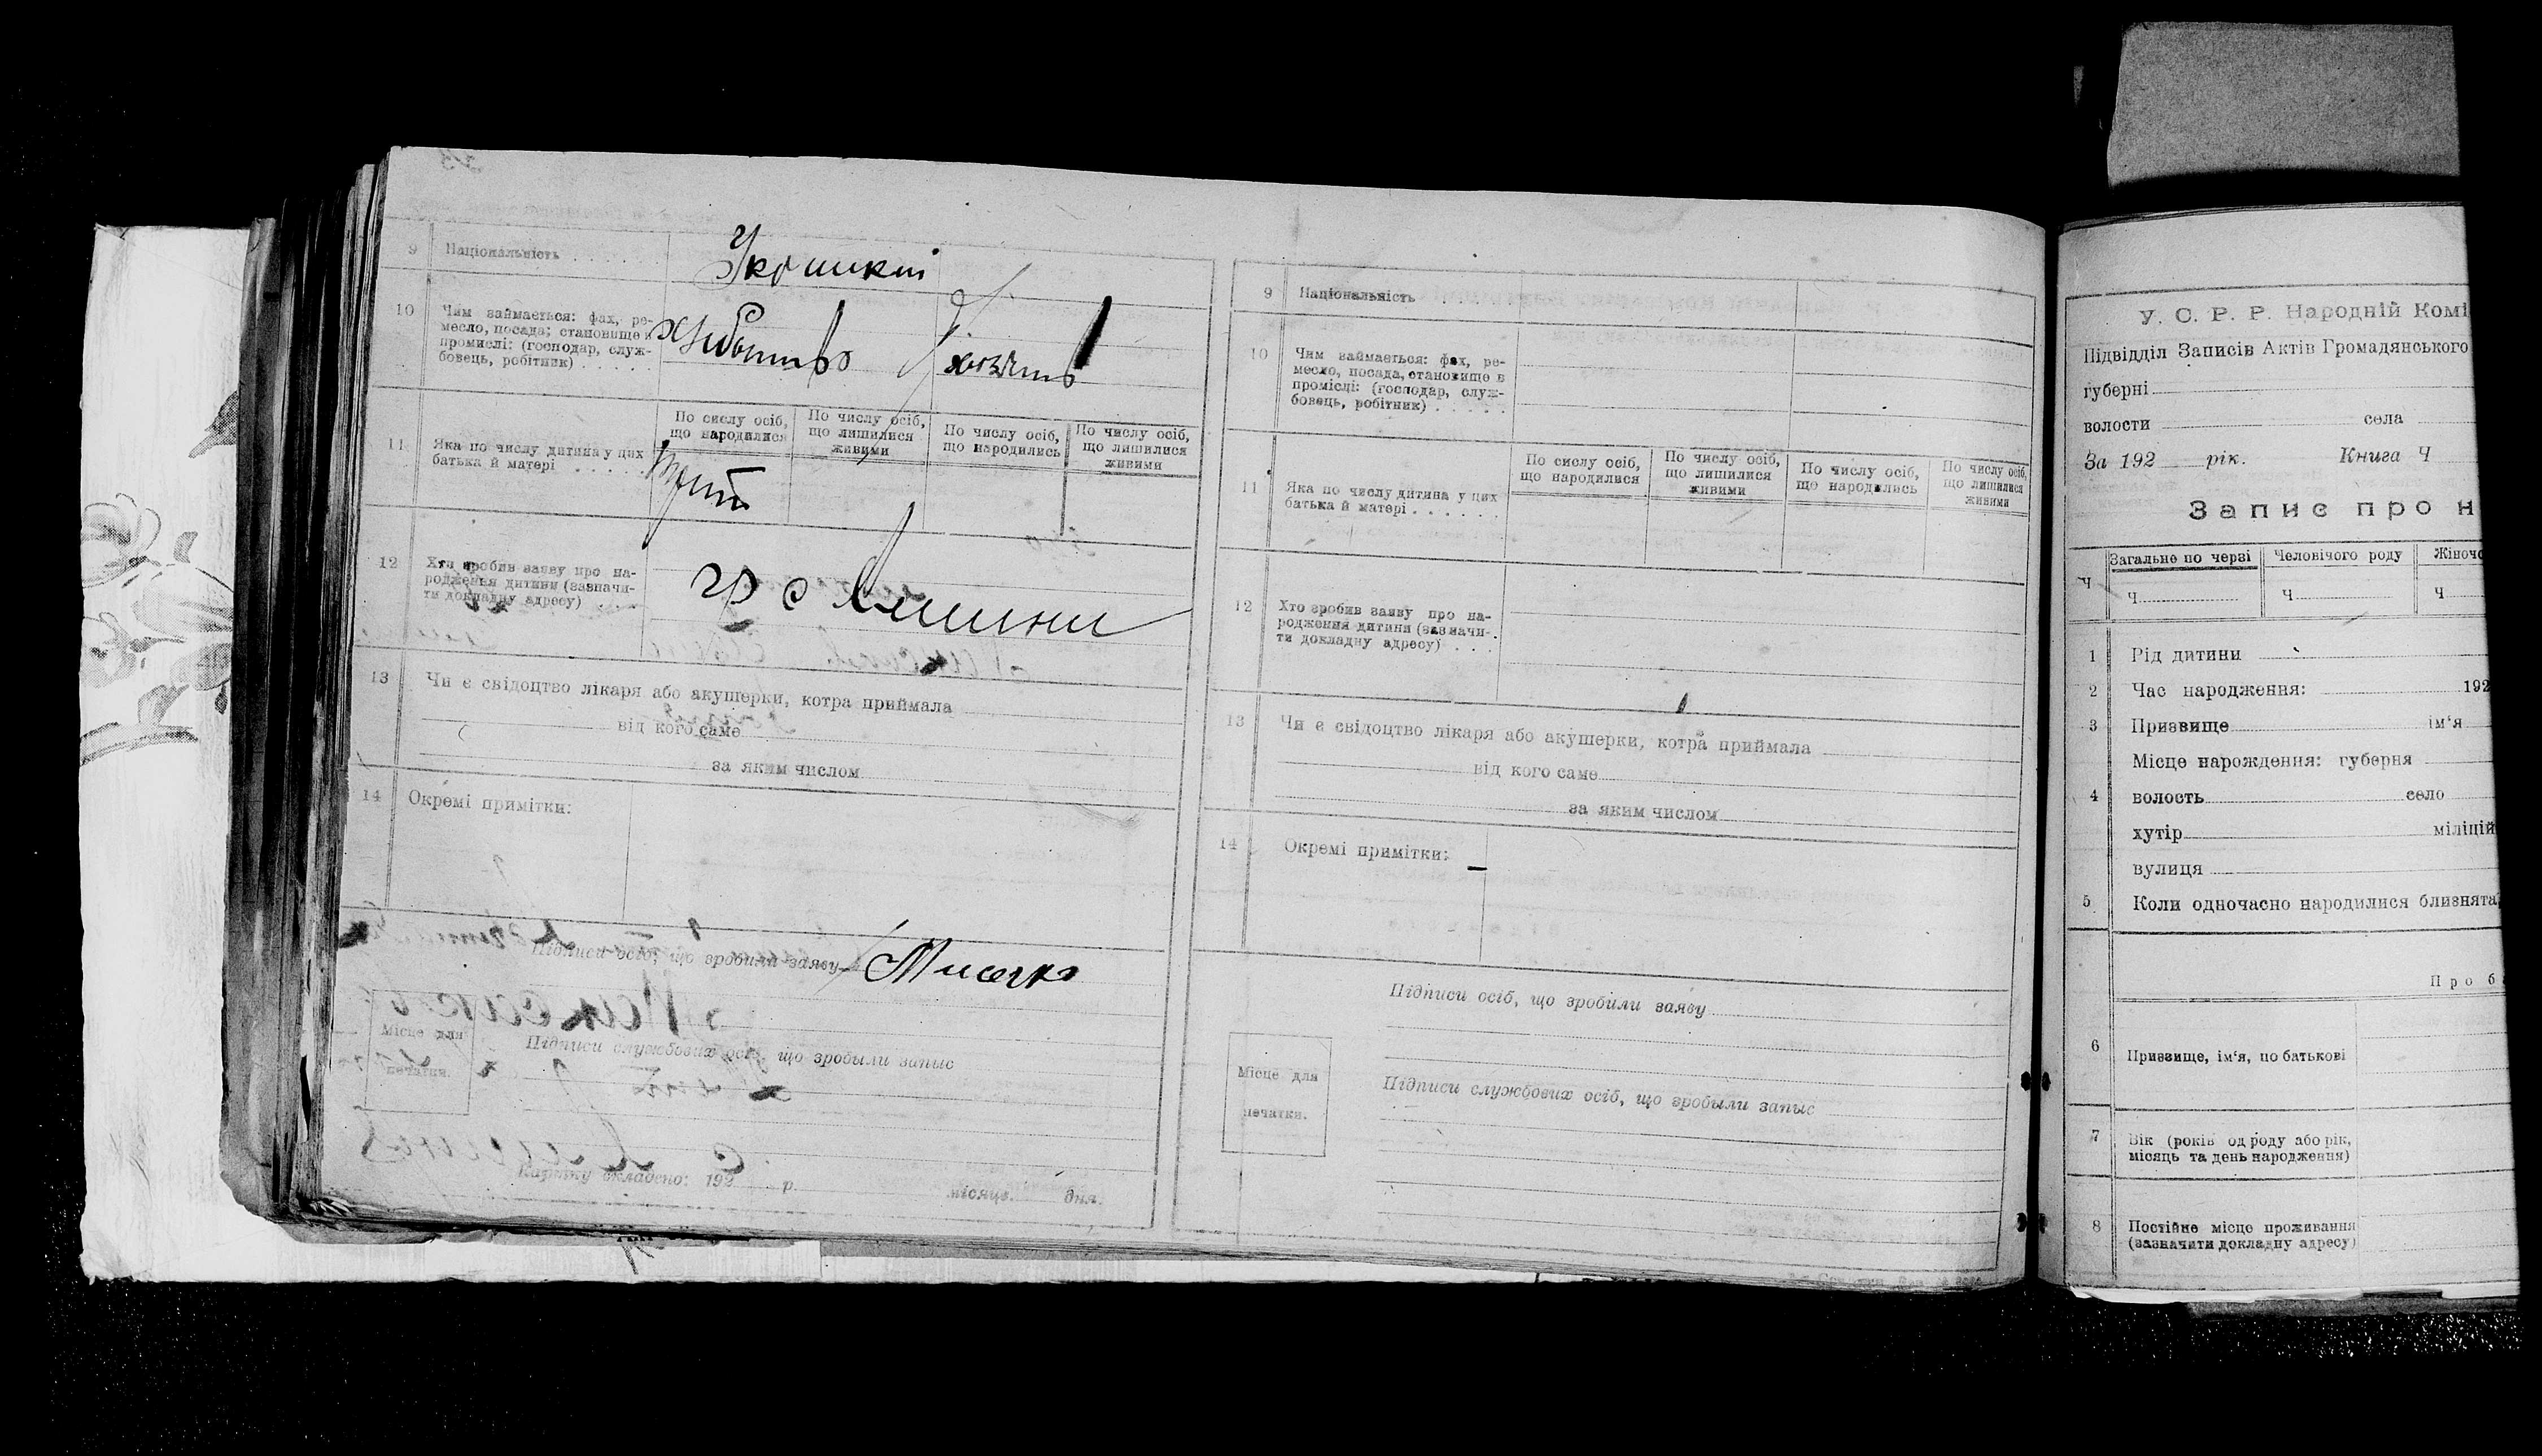 9 Національність . . . . .
10 Чим займається: фах, ре-
месло, посада; становище в
промислі: (господар, служ-
бовець, робітник) . . . . .
По сислу осіб,
що народилися
По числу осіб,
що лишилися
живими
По числу осіб,
що народились
По числу осіб,
що лишилися
живими
11 Яка по числу дитина у цих
батька й матері . . . . .
12 Хто зробив заяву про на-
родження дитини (зазначи-
ти докладну адресу) . . .
гр с
13 Чи є свідоцтво лікаря або акушерки, котра приймала
від кого саме
за яким числом
14 Окремі примітки:
Підписи осіб, що зробили заяву
Місце для
печатки.
Підписи службових осіб, що зробыли запыс
Картку складено: 192 р. місяця. дня.
9 Національність
10 Чим займається: фах, ре-
месло, посада, становище в
проміслі: (господар, служ-
бовець, робітник) . . . . .
По сислу осіб,
що народилися
По числу осіб,
що лишилися
живими
По числу осіб,
що народились
По числу осіб,
що лишилися
живими
11 Яка по числу дитина у цих
батька й матері . . . . . .
12 Хто зробив заяву про на-
родження дитини (зазначи-
ти докладну адресу) . . .
13 Чи є свідоцтво лікаря або акушерки, котра приймала
від кого саме
за яким числом
14 Окремі примітки:
Підписи осіб, що зробили заяву
Місце для
печатки.
Підписи службових осіб, що зробыли запыс
У. С. Р. Р. Народній Комі
Підвідділ Записів Актів Громадянського
губерні
волости село
За 192 рік. Книга Ч
Запис про н
Ч Загальне по черзі Человічого роду Жіночо
Ч Ч Ч
1 Рід дитини
2 Час народження: 192
3 Призвище ім'я
Місце нарождення: губерня
4 волость село
хутір міліцій
вулиця
5 Коли одночасно народилися близнята
Про б
6 Призвище, ім'я, по батькові
7 Вік (років од роду або рік,
місяць та день народження)
8 Постійне місце проживання
(зазначити докладну адресу)